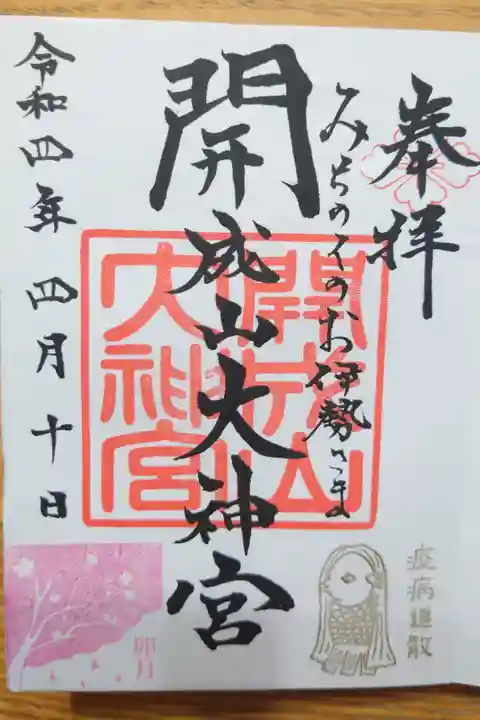 奉拝
みちのくのお伊勢さま
開成山大神宮
開成山
大神宮
令和四年四月十日
疫病退散
卯月